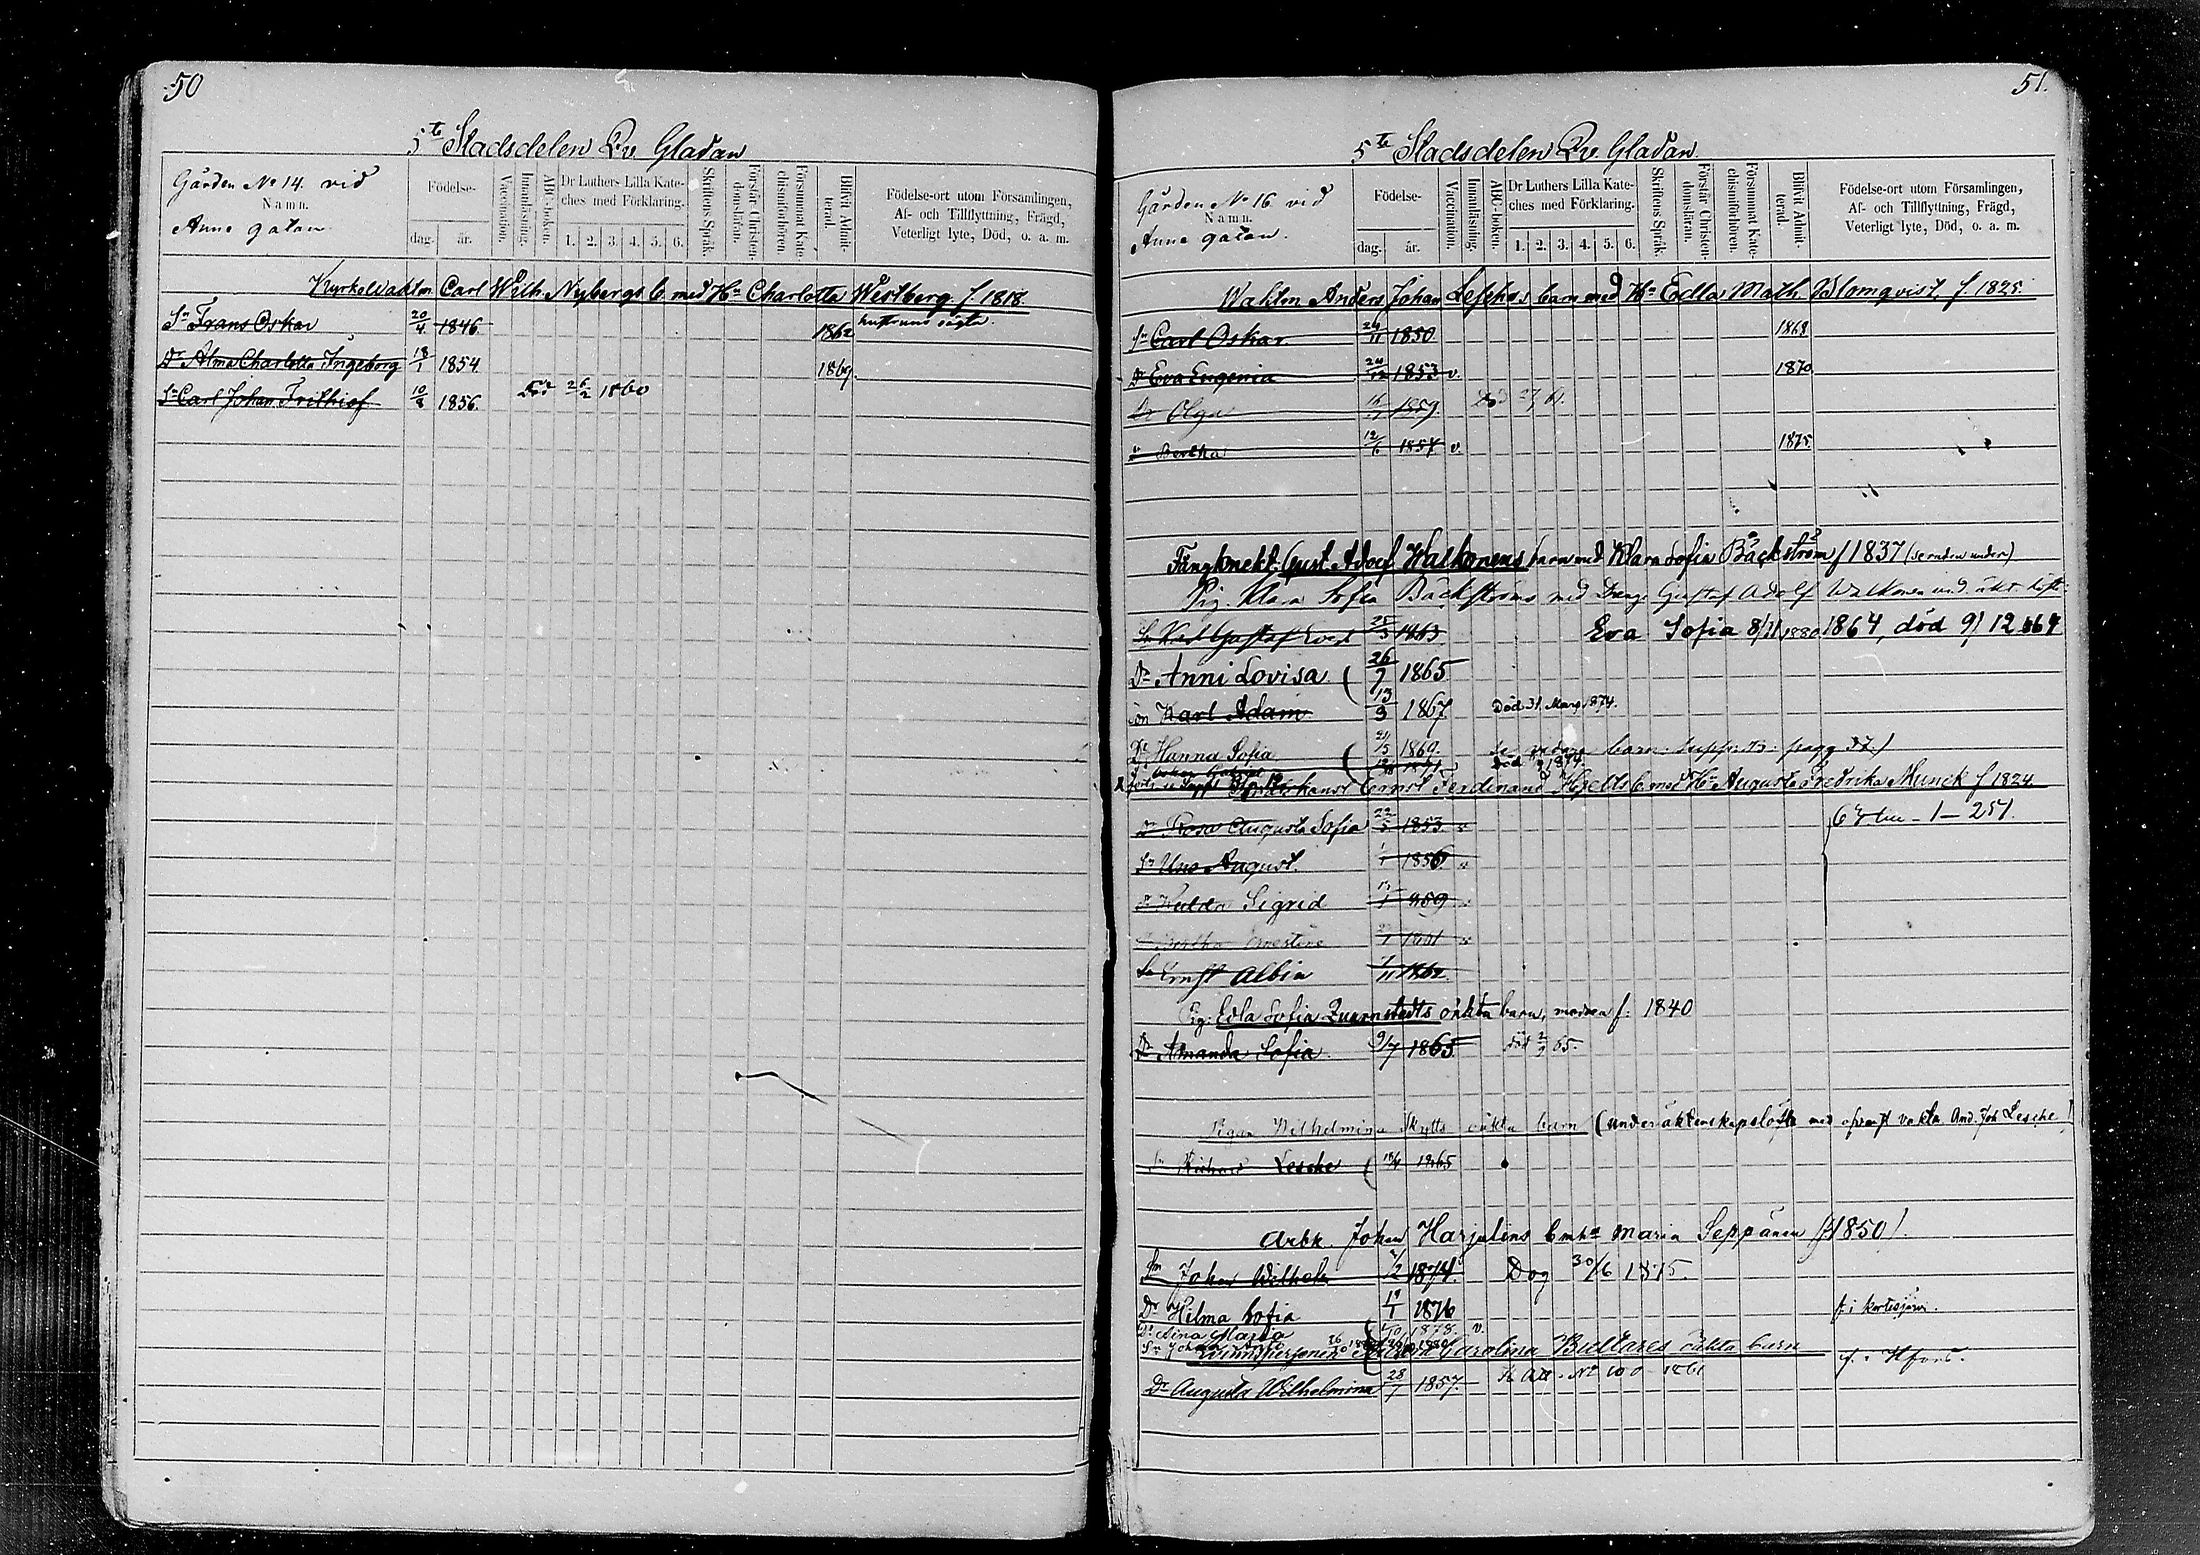 50
5te Stadsdelen Qv. Gladan
Gården No 14. vid
Namn.
Anne gatan
Födelse-
dag. år.
Vaccination.
Innanläsning.
ABC-boken.
Dr Luthers Lilla Kate-
ches med Förklaring.
1. 2. 3. 4. 5. 6.
Skriftens Språk.
Förstår Christen-
domsläran.
Försummat Kate-
chismiförhören.
Blifvit Admit-
terad.
Födelse-ort utom Församlingen,
Af- och Tillflyttning, Frägd,
Veterligt lyte, Död, o. a. m.
Kyrkovakten Carl Wilh. Nybergs b. med Hu Charlotta Westberg f. 1818.
Sn Frans Oskar 20/4 1846 1862
Dr Alma Charlotta Ingeborg 18/1 1854 1869.
Sn Carl Johan Frithiof 10/8 1856. Död 26/2 1860
51.
5te Stadsdelen Qv. Gladan.
Gården No 16 vid
Namn.
Anne gatan.
Födelse-
dag. år.
Vaccination.
Innanläsning.
ABC-boken.
Dr Luthers Lilla Kate-
ches med Förklaring.
1. 2. 3. 4. 5. 6.
Skriftens Språk.
Förstår Christen-
domsläran.
Försummat Kate-
chismiförhören.
Blifvit Admit-
terad.
Födelse-ort utom Församlingen,
Af- och Tillflyttning, Frägd,
Veterligt lyte, Död, o. a. m.
Waktm Anders Johan Lesches barn med Hu Edla Math. Blomqvist, f. 1825.
Sn Carl Oskar 24/11 1850 1868
Dr Eva Eugenia 24/12 1853 v. 1870
Dr Olga 1859 Död
" Bertha 12/6 1857 v. 1875
Fångknekt Gust. Adolf Walkonens barn med Klara Sofia Bäckström f 1837
Pig. Klara Sofia Bäckströms med Dräng Gustaf Adolf Walkonen und. äkt. löfte
Sn Karl Gustaf 25/3 1863 Eva Sofia 8/11 1864, död 9/12
Dr Anni Lovisa 26/7 1865
Son Karl Adam 13/3 1867 Död 31 Mars 1874.
Dr Hanna Sofia 1869. barn. supp.
Ernst Ferdinand Hjelts b. med Hu Augusta Fredrika Munck f 1824.
Dr Rosa Augusta Sofia 22/5 1853 v 1 - 251.
Sn Uno August. 1856 v
Dr Hedda Sigrid 1859
Bertha Ernestine 1861
Sn Ernst Albin 1/11 1862
Pig. Edla Sofia Quarnstedts oäkta barn, modren f. 1840
Dr Amanda Sofia 9/7 1865 död 65.
Pigan Wilhelmina Skytts oäkta barn (under äktenskapslöfte med afsmst vakta And. Joh Lesche)
Sn Richard Lesche 1865
Arbk. Johan Harjulins b mhu Maria Seppänen (f 1850).
Sn Johan Wilhelm 1/2 1874. Dog 30/6 1875.
Dr Hilma Sofia 19/1 1876 f. i Kortesjärvi.
Dr Aina Maria 1/10 1878. v.
Sn Johan
Qvinnspersonen Carolina Bullares oäkta barn
Dr Augusta Wilhelmina 28/7 1857. No 100 - 1861 f. i Hfors.